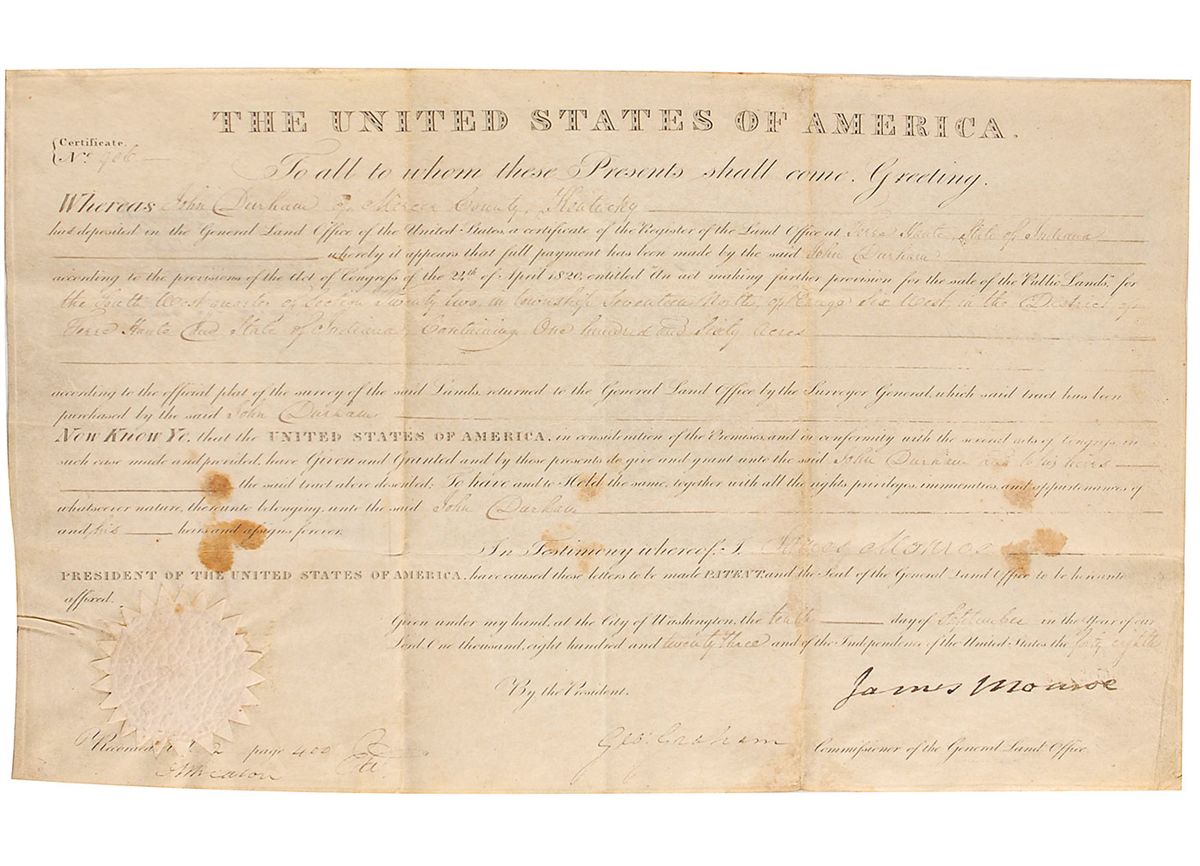 THE UNITED STATES OF AMERICA.
Certificate.
No. 906
To all to whom these Presents shall come, Greeting.
Whereas John Durham of Mercer County, Kentucky
has deposited in the General Land Office of the United States, a certificate of the Register of the Land Office at Terre Haute, State of Indiana
whereby it appears that full payment has been made by the said John Durham
according to the provisions of the Act of Congress of the 24th of April 1820, entitled "An act making further provision for the sale of the Public Lands," for
the South West quarter of Section Twenty two, in township Seventeen North, of Range Six West, in the District of
Terre Haute and State of Indiana, Containing One hundred and Sixty acres
according to the official plat of the survey of the said Lands, returned to the General Land Office by the Surveyor General, which said tract has been
purchased by the said John Durham
Now Know Ye, that the UNITED STATES OF AMERICA, in consideration of the Premises, and in conformity with the several acts of Congress, in
such case made and provided, have Given and Granted and by these presents do give and grant unto the said John Durham and to his heirs
the said tract above described; To have and to Hold the same, together with all the rights, privileges, immunities, and appurtenances of
whatsoever nature, thereunto belonging, unto the said John Durham
and his heirs and assigns forever.
In Testimony whereof, I, James Monroe
PRESIDENT OF THE UNITED STATES OF AMERICA, have caused these letters to be made PATENT, and the Seal of the General Land Office to be hereunto
affixed.
Given under my hand, at the City of Washington, the tenth day of September in the Year of our
Lord, One thousand, eight hundred and twenty three and of the Independence of the United States the forty eighth
James Monroe
By the President,
Geo: Graham Commissioner of the General Land Office.
Recorded 2 page 400